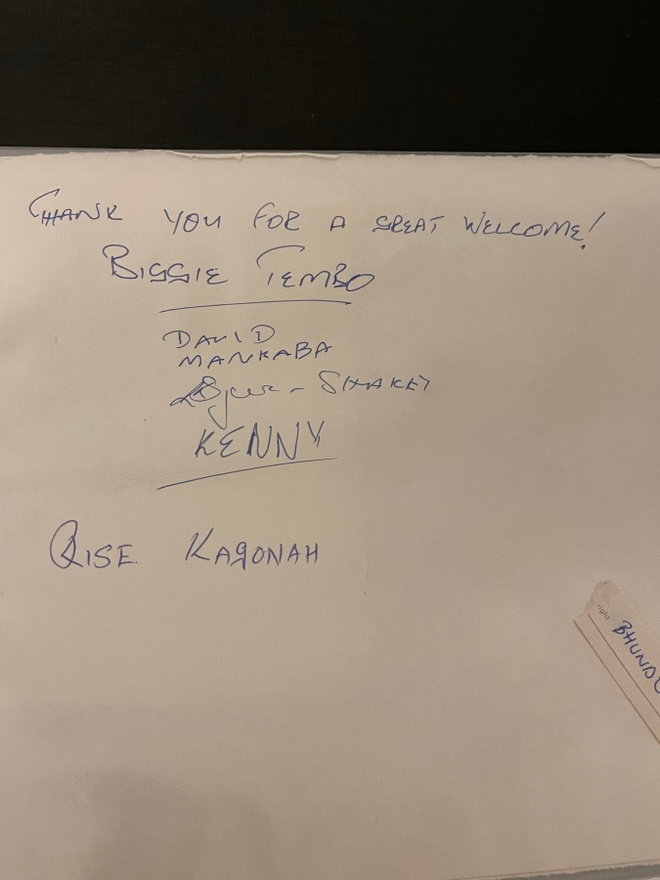 THANK YOU FOR A GREAT WELCOME!
BIGGIE TEMBO
DAVID
MANKABA
SHAKEY
KENNY
RISE KAGONAH
ight
BHUNDU